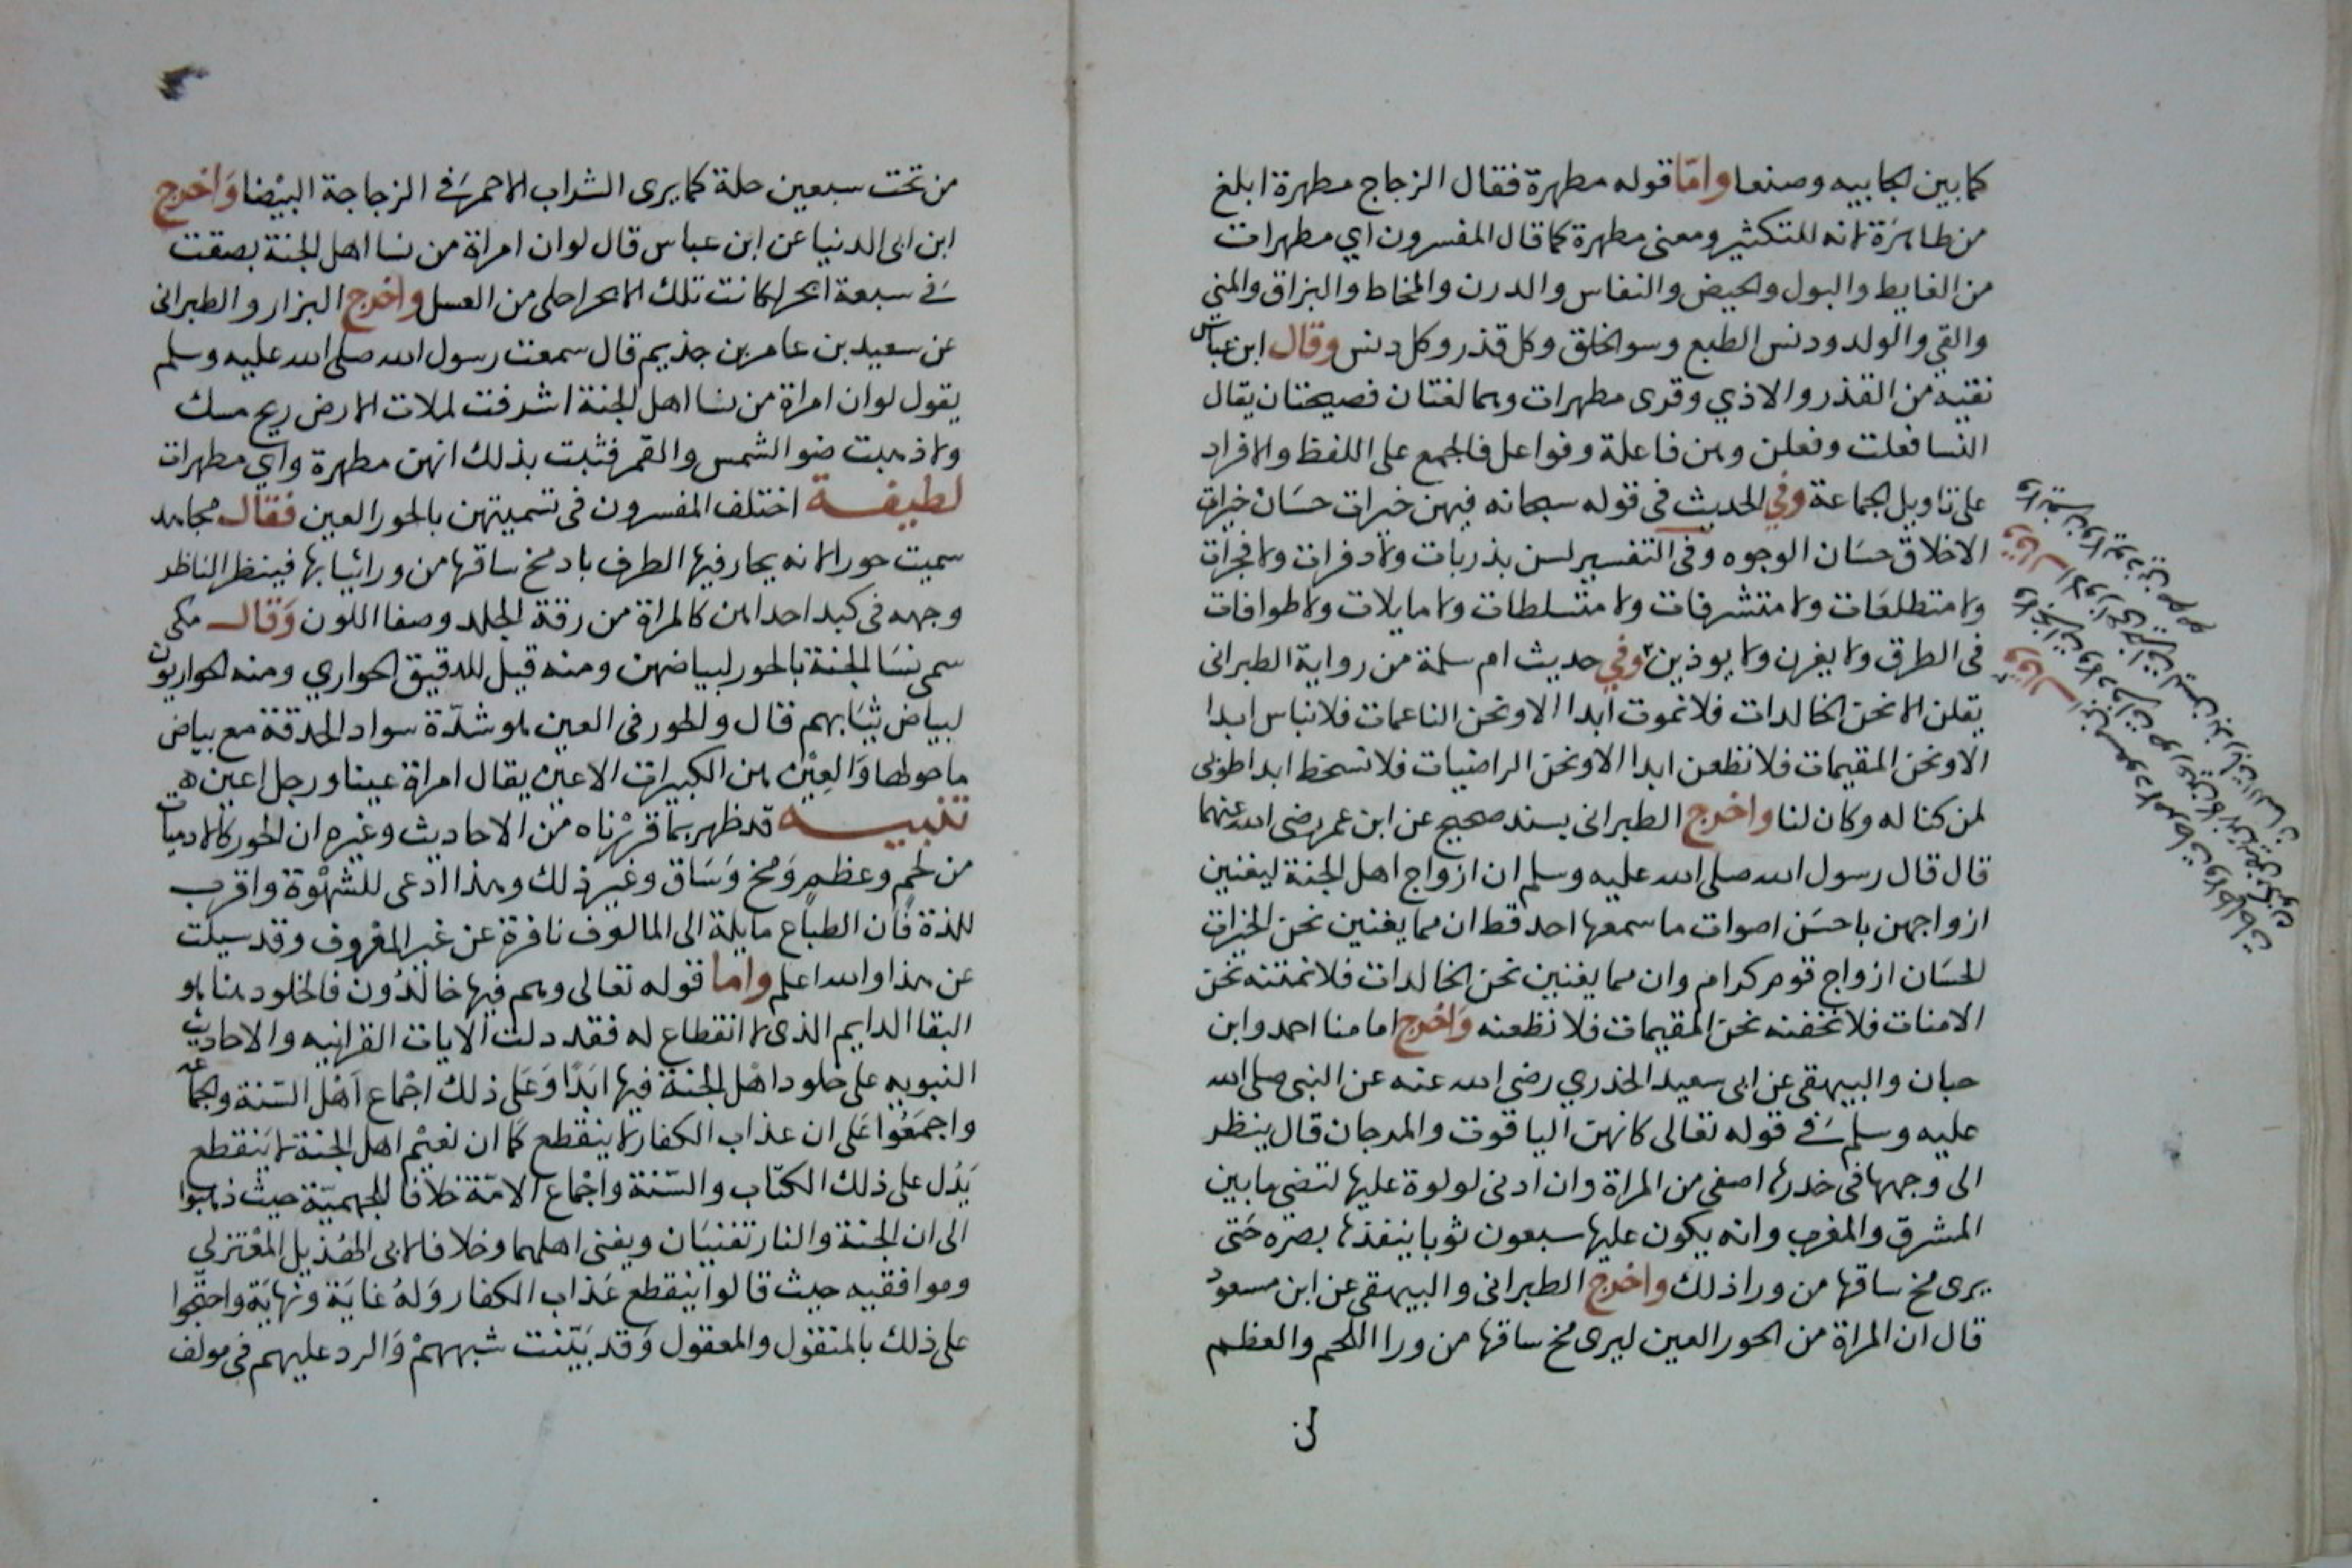 كما بين الجابيه وصنعا واما قوله مطهرة فقال الزجاج مطهرة ابلغ
من طاهرة لانه للتكثير ومعنى مطهرة كما قال المفسرون اي مطهرات
من الغايط والبول والحيض والنفاس والدرن والمخاط والبزاق والمني
والقي والولد ودنس الطبع وسو الخلق وكل قذر وكل دنس وقال ابن عباس
نقية من القذر والاذي وقرى مطهرات وهما لغتان فصيحتان يقال
النسا فعلت وفعلن وهن فاعلة وفواعل فالجمع على اللفظ والافراد
على تاويل الجماعة وفي الحديث في قوله سبحانه فيهن خيرات حسان خيرات
الاخلاق حسان الوجوه وفي التفسير لسن بذربات ولا دفرات ولا فجرات
ولا متطلعات ولا متشرفات ولا متسلطات ولا مايلات ولا طوافات
في الطرق ولا يغرن ولا يوذين وفي حديث ام سلمة من رواية الطبرانى
يقلن الا نحن الخالدات فلا نموت ابدا الا ونحن الناعمات فلا نباس ابدا
الا ونحن المقيمات فلا نظعن ابدا الا ونحن الراضيات فلا نسخط ابدا طوبى
لمن كنا له وكان لنا واخرج الطبرانى بسند صحيح عن ابن عمر رضى الله عنهما
قال قال رسول الله صلى الله عليه وسلم ان ازواج اهل الجنة ليغنين
ازواجهن باحسن اصوات ما سمعها احد قط ان مما يغنين نحن الخيرات
الحسان ازواج قوم كرام وان مما يغنين نحن الخالدات فلا نمتنه نحن
الامنات فلا نخفنه نحن المقيمات فلا نظعنه واخرج امامنا احمد وابن
حبان والبيهقى عن ابى سعيد الخذري رضى الله عنه عن النبى صلى الله
عليه وسلم في قوله تعالى كانهن الياقوت والمرجان قال ينظر
الى وجهها فى خدرها اصفى من المراة وان ادنى لولوة عليها لتضى ما بين
المشرق والمغرب وانه يكون عليها سبعون ثوبا ينفذها بصره حتى
يرى مخ ساقها من ورا ذلك واخرج الطبرانى والبيهقى عن ابن مسعود
قال ان المراة من الحور العين ليرى مخ ساقها من ورا اللحم والعظم
من
من تحت سبعين حلة كما يرى الشراب الاحمر في الزجاجة البيضا واخرج
ابن ابى الدنيا عن ابن عباس قال لو ان امراة من نسا اهل الجنة بصقت
في سبعة ابحر لكانت تلك الابحر احلى من العسل واخرج البزار والطبرانى
عن سعيد بن عامر بن جذيم قال سمعت رسول الله صلى الله عليه وسلم
يقول لو ان امراة من نسا اهل الجنة اشرفت لملات الارض ريح مسك
ولاذهبت ضو الشمس والقمر فثبت بذلك انهن مطهرة واي مطهرات
لطيفة اختلف المفسرون فى تسميتهن بالحور العين فقال مجاهد
سميت حورا لانه يحار فيها الطرف باد مخ ساقها من ورا ثيابها فينظر الناظر
وجهه فى كبد احداهن كالمراة من رقة الجلد وصفا اللون وقال مكى
سمى نسا الجنة بالحور لبياضهن ومنه قيل للدقيق الحواري ومنه الحواريون
لبياض ثيابهم قال والحور فى العين هو شدة سواد الحدقة مع بياض
ما حولها والعين هن الكبيرات الاعين يقال امراة عينا ورجل اعين ه
تنبيه قد ظهر بما قررناه من الاحاديث وغيره ان الحور كالادميات
من لحم وعظم ومخ وساق وغير ذلك وهذا ادعى للشهوة واقرب
للذة فان الطباع مايلة الى المالوف نافرة عن غير المعروف وقد سيلت
عن هذا والله اعلم واما قوله تعالى وهم فيها خالدون فالخلود هنا هو
البقا الدايم الذى لا انقطاع له فقد دلت الايات القرانيه والاحاديث
النبويه على خلود اهل الجنة فيها ابدا وعلى ذلك اجماع اهل السنة والجماعة
واجمعوا على ان عذاب الكفار لا ينقطع كما ان نعيم اهل الجنة لا ينقطع
يدل على ذلك الكتاب والسنة واجماع الامة خلافا للجهمية حيث ذهبوا
الى ان الجنة والنار تفنيان ويفنى اهلهما وخلافا لابى الهذيل المعتزلي
وموافقيه حيث قالوا ينقطع عذاب الكفار وله غاية ونهاية واحتجوا
على ذلك بالمنقول والمعقول وقد بينت شبههم والرد عليهم فى مولف